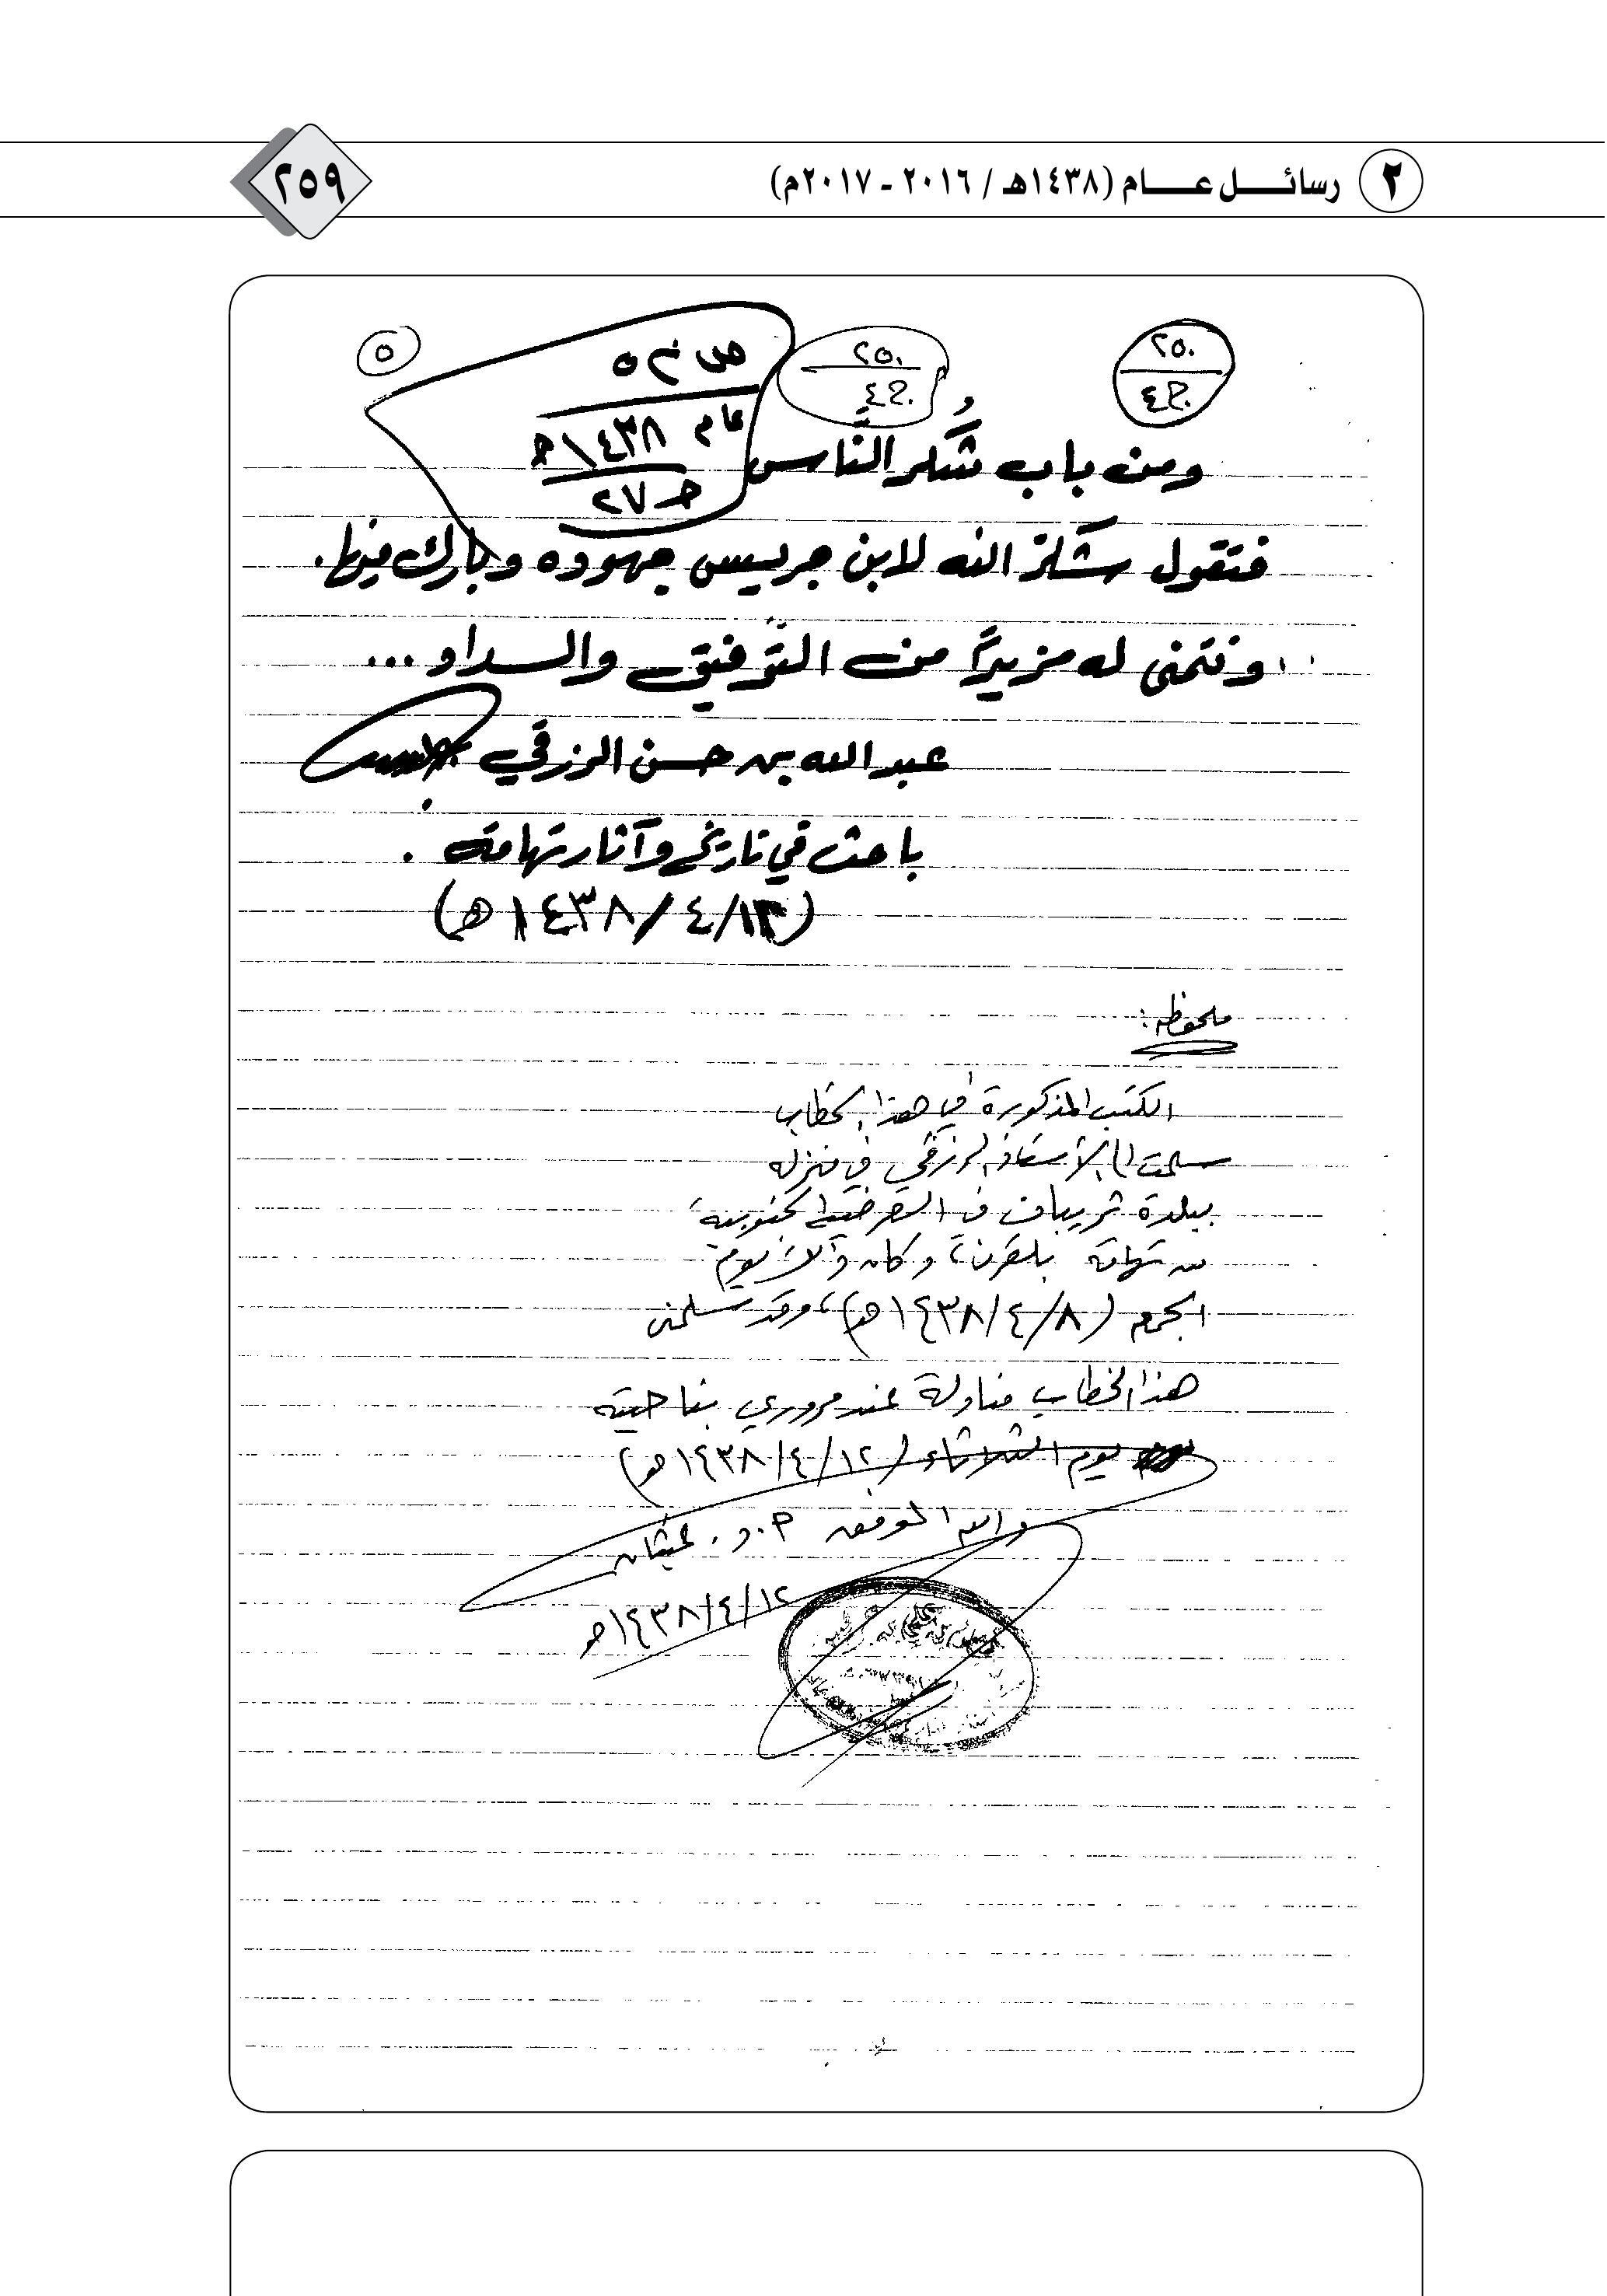 ٢ رسائل عام (١٤٣٨هـ / ٢٠١٦ - ٢٠١٧م)
٢٥٩
٥
٢٥٠
٢٥٠
عام ١٤٣٨هـ
٢٧
ومن باب شُكر النَّاس
فتقول شكر الله لابن جريس جهوده وبارك فيها.
ونتمنى له مزيداً من التَّوفيق والسداد ...
عبدالله بن حسن الرزقي
باحث في تاريخ وآثار تهامة .
(١٣/٤/١٤٣٨هـ)
ملحوظه :
الكتب المذكورة في هذا الخطاب
سلمت الأستاذ الرزقي في منزله
ببلدة ثريبان في العرضية الجنوبية
من تهامة بلقرن، وكان ذلك يوم
الجمعة (٨/٤/١٤٣٨هـ)، وقد سلمني
هذا الخطاب مناولة عند مروري بناحيته
يوم الثلاثاء (١٢/٤/١٤٣٨هـ)
والله الموفق أ.د. غيثان
١٢/٤/١٤٣٨هـ